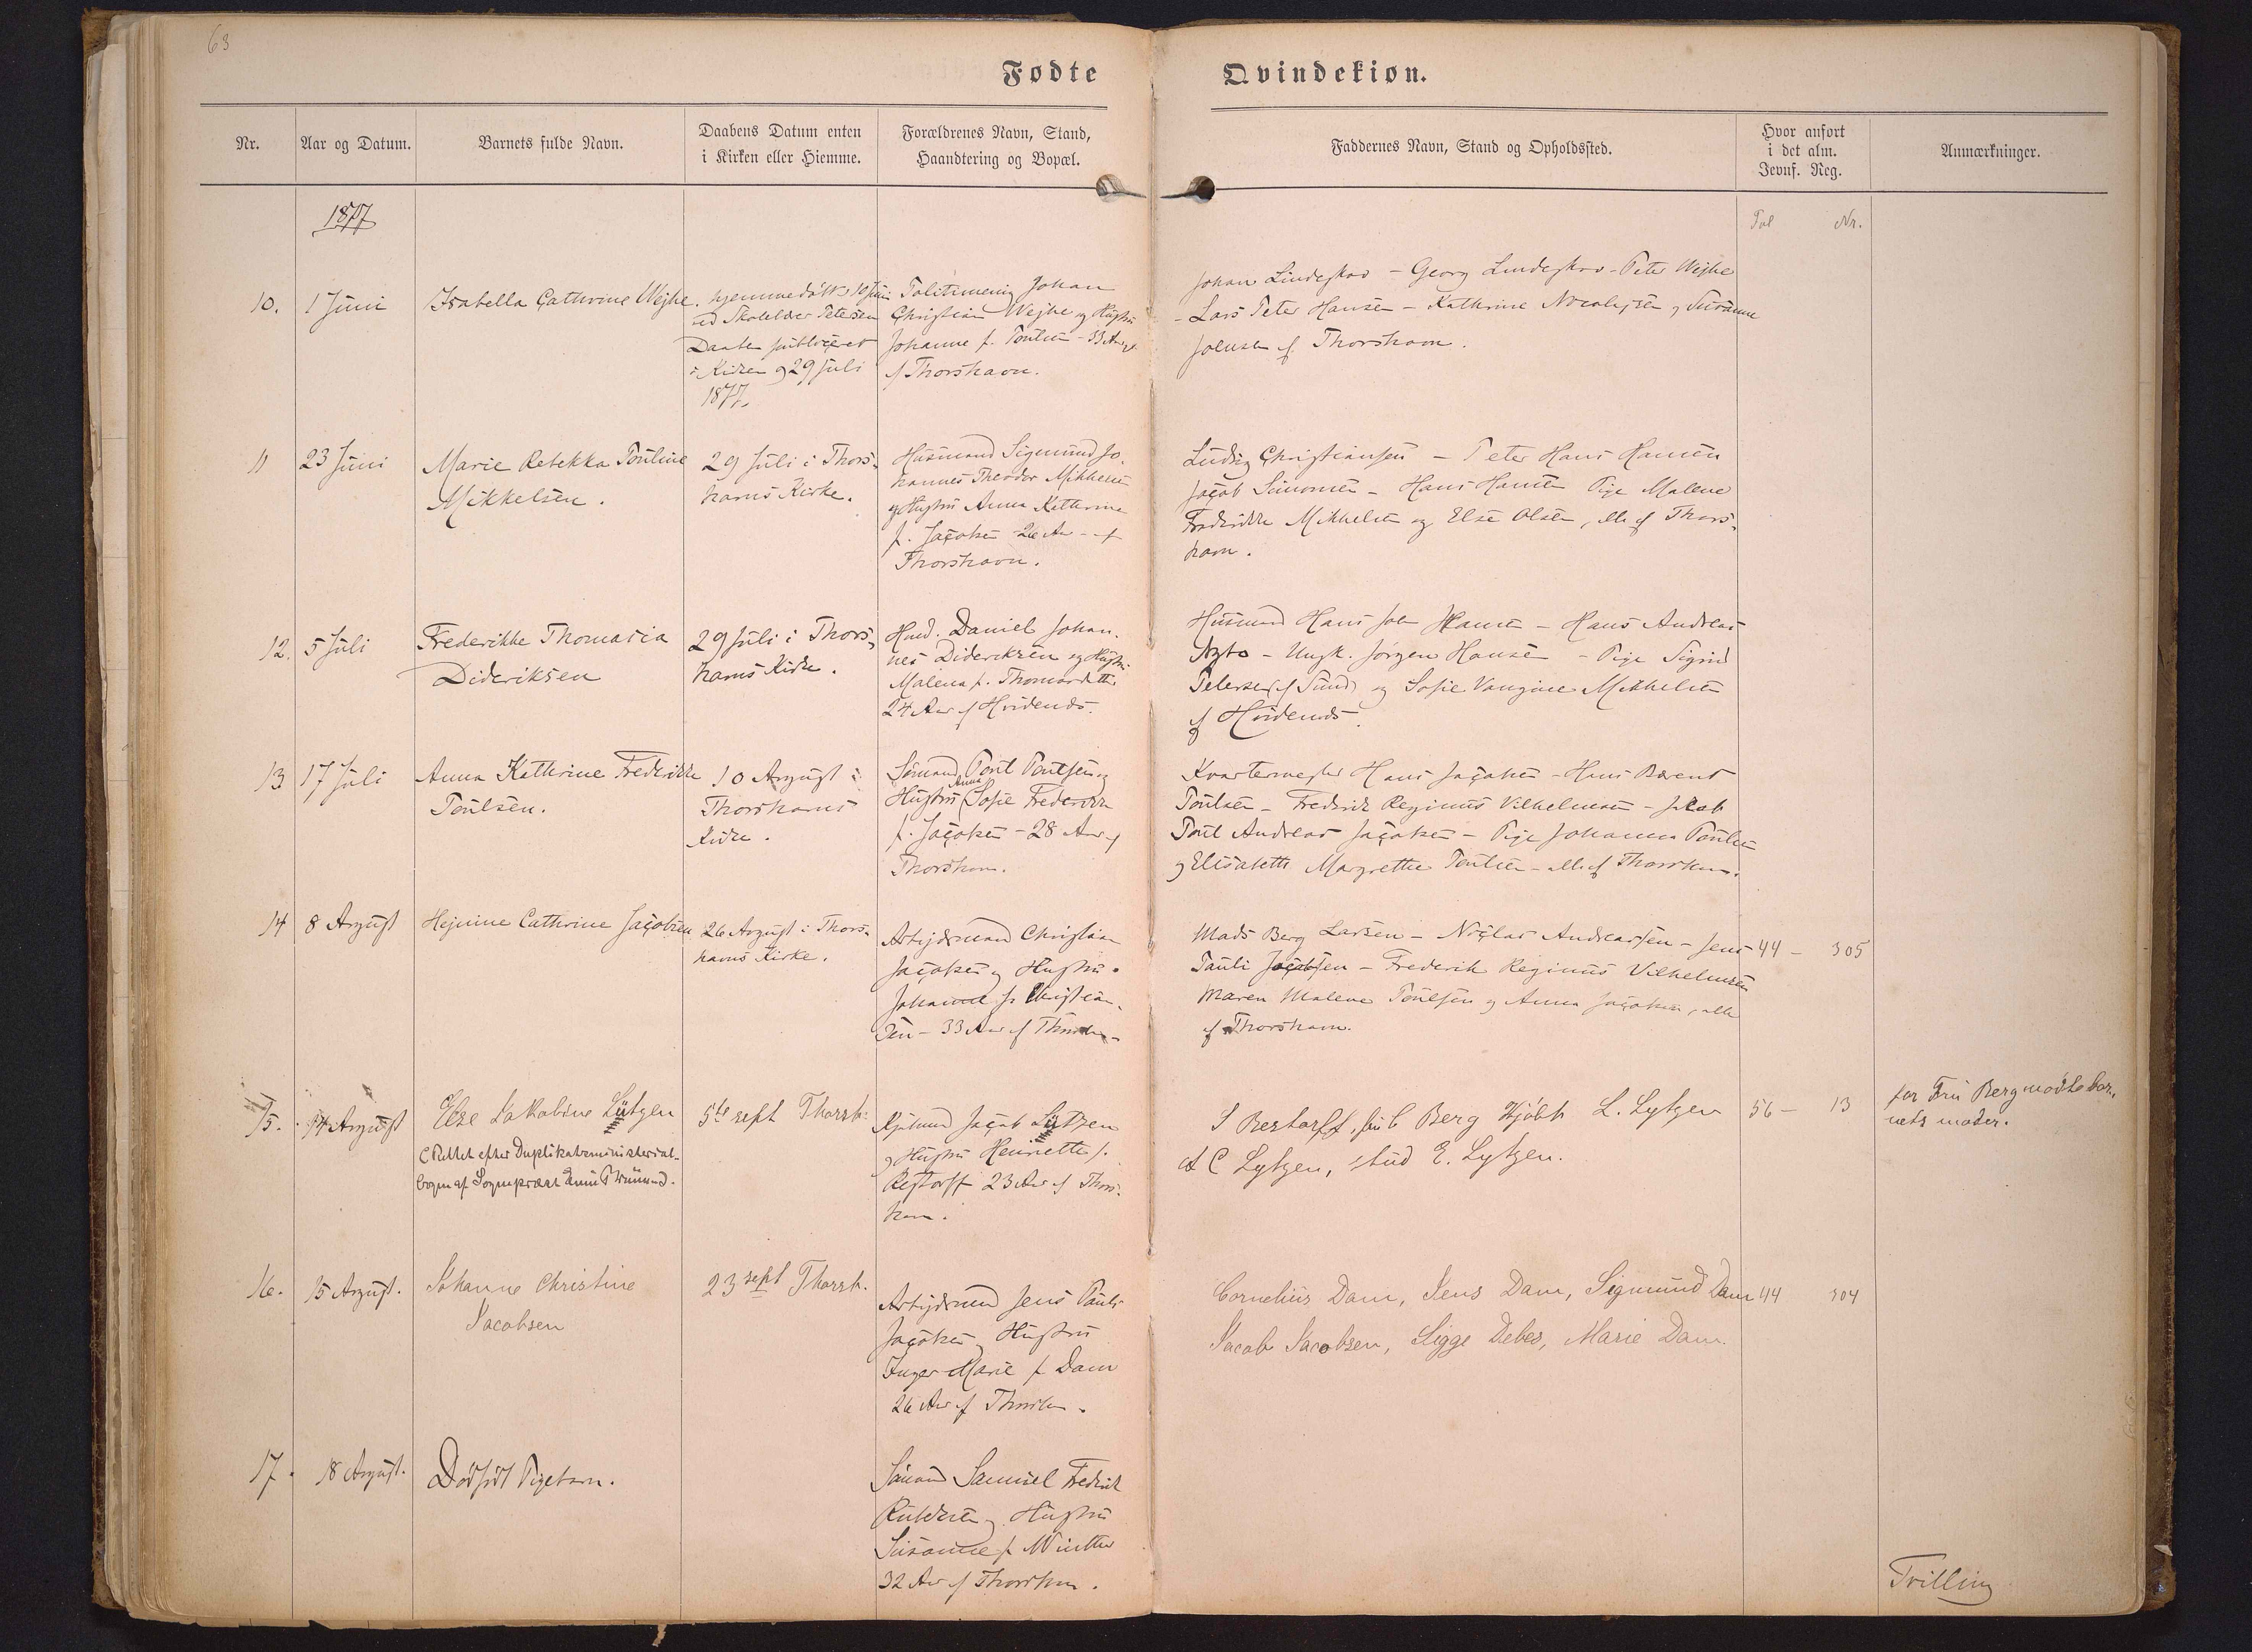 63
Fødte
Qvindekiøn.
Nr.
Aar og Datum.
Barnets fulde Navn.
Daabens Datum enten
i Kirken eller Hiemme.
Forældrenes Navn, Stand,
Haandtering og Bopæl.
Faddernes Navn, Stand og Opholdssted.
Hvor anført
i det alm.
Jevnf. Reg.
Anmærkninger.
1877
Fol Nr.
10.
1 Juni
Isabella Cathrine Wejhe.
hjemmedøbt 10 Juni
ved Skolelær Petersen
Daaben publiceret
i Kirken 29 Juli
1877.
Politimenig Johan
Christian Wejhe og Hustru
Johanne f. Poulsen - 33 Aar
af Thorshavn.
Johan Lindeskov - Georg Lindeskov - Peter Wejhe
- Lars Peter Hansen - Kathrine Nicolajsen, Susanne
Joensen af Thorshavn.
11
23 Juni
Marie Rebekka Pouline
Mikkelsen.
29 Juli i Thors-
havns Kirke.
Husmand Sigmund Jo-
hannes Theodor Mikkelsen
og Hustru Anna Kathrine
f. Jacobsen 26 Aar - af
Thorshavn.
Ludvig Christiansen - Peter Hans Hansen
Jacob Simonsen - Hans Hansen Pige Malene
Frederikke Mikkelsen og Else Olsen, alle af Thors-
havn.
12.
5 Juli
Frederikke Thomasia
Dideriksen
29 Juli i Thors-
havns Kirke.
Hmd. Daniel Johan-
nes Dideriksen og Hustru
Malena f. Thomasdatter
24 Aar af Hvidenæs.
Husmand Hans Joen Hansen - Hans Andreas
- Ungk. Jørgen Hansen - Pige Sigrid
Petersen (af Sund) og Sofie Mikkelsen
af Hvidenæs.
13
17 Juli
Anna Kathrine Frederikke
Poulsen.
10 August i
Thorshavns
Kirke.
Sømand Poul Poulsen og
Hustru Anna Sofie Frederikke
f. Jacobsen - 28 Aar af
Thorshavn.
Kvartermester Hans Jacobsen - Hans Berent
Poulsen - Fredrik Reginus Vilhelmsen -
Poul Andreas Jacobsen - Pige Johanna Poulsen
og Elisabeth Margrethe Poulsen - alle af Thorshavn.
14
8 August
Hejnine Cathrine Jacobsen
26 August i Thors-
havns Kirke.
Arbejdsmand Christian
Jacobsen og Hustru
Johanne f. Christian-
sen - 33 Aar af Thorshavn.
Mads Berg Larsen - Niclas Andreassen - Jens
Pauli Jacobsen - Frederik Reginus Vilhelmsen
Maren Malene Poulsen og Anna Jacobsen, alle
af Thorshavn.
44 - 305
15.
14 August
Else Jakobine Lützen
(Rettet efter Duplikatministerial-
bogen af Sognepræst
5te sept Thorsh.
Kjøbmand Jacob Lützen
og Hustru Henriette f.
Restorff 23 Aar af Thors-
havn.
S Restorff, fru C Berg Kjöbh L. Lytzen
A C Lytzen, stud E. Lytzen.
56 - 13
for Fru Berg mødte bar-
nets moder.
16.
15 August.
Johanne Christine
Jacobsen
23 sept Thorsh.
Arbejdsmand Jens Pauli
Jacobsen, Hustru
Inger Marie f. Dam
26 Aar af Thorshavn.
Cornelius Dam, Jens Dam, Sigmund Dam
Jacob Jacobsen, Sigge Debes, Marie Dam.
44 304
17.
18 August.
Dødfødt Pigebarn.
Sømand Samuel Fredrik
og Hustru
Susanne f. Winther
32 Aar af Thorshavn.
Tvilling